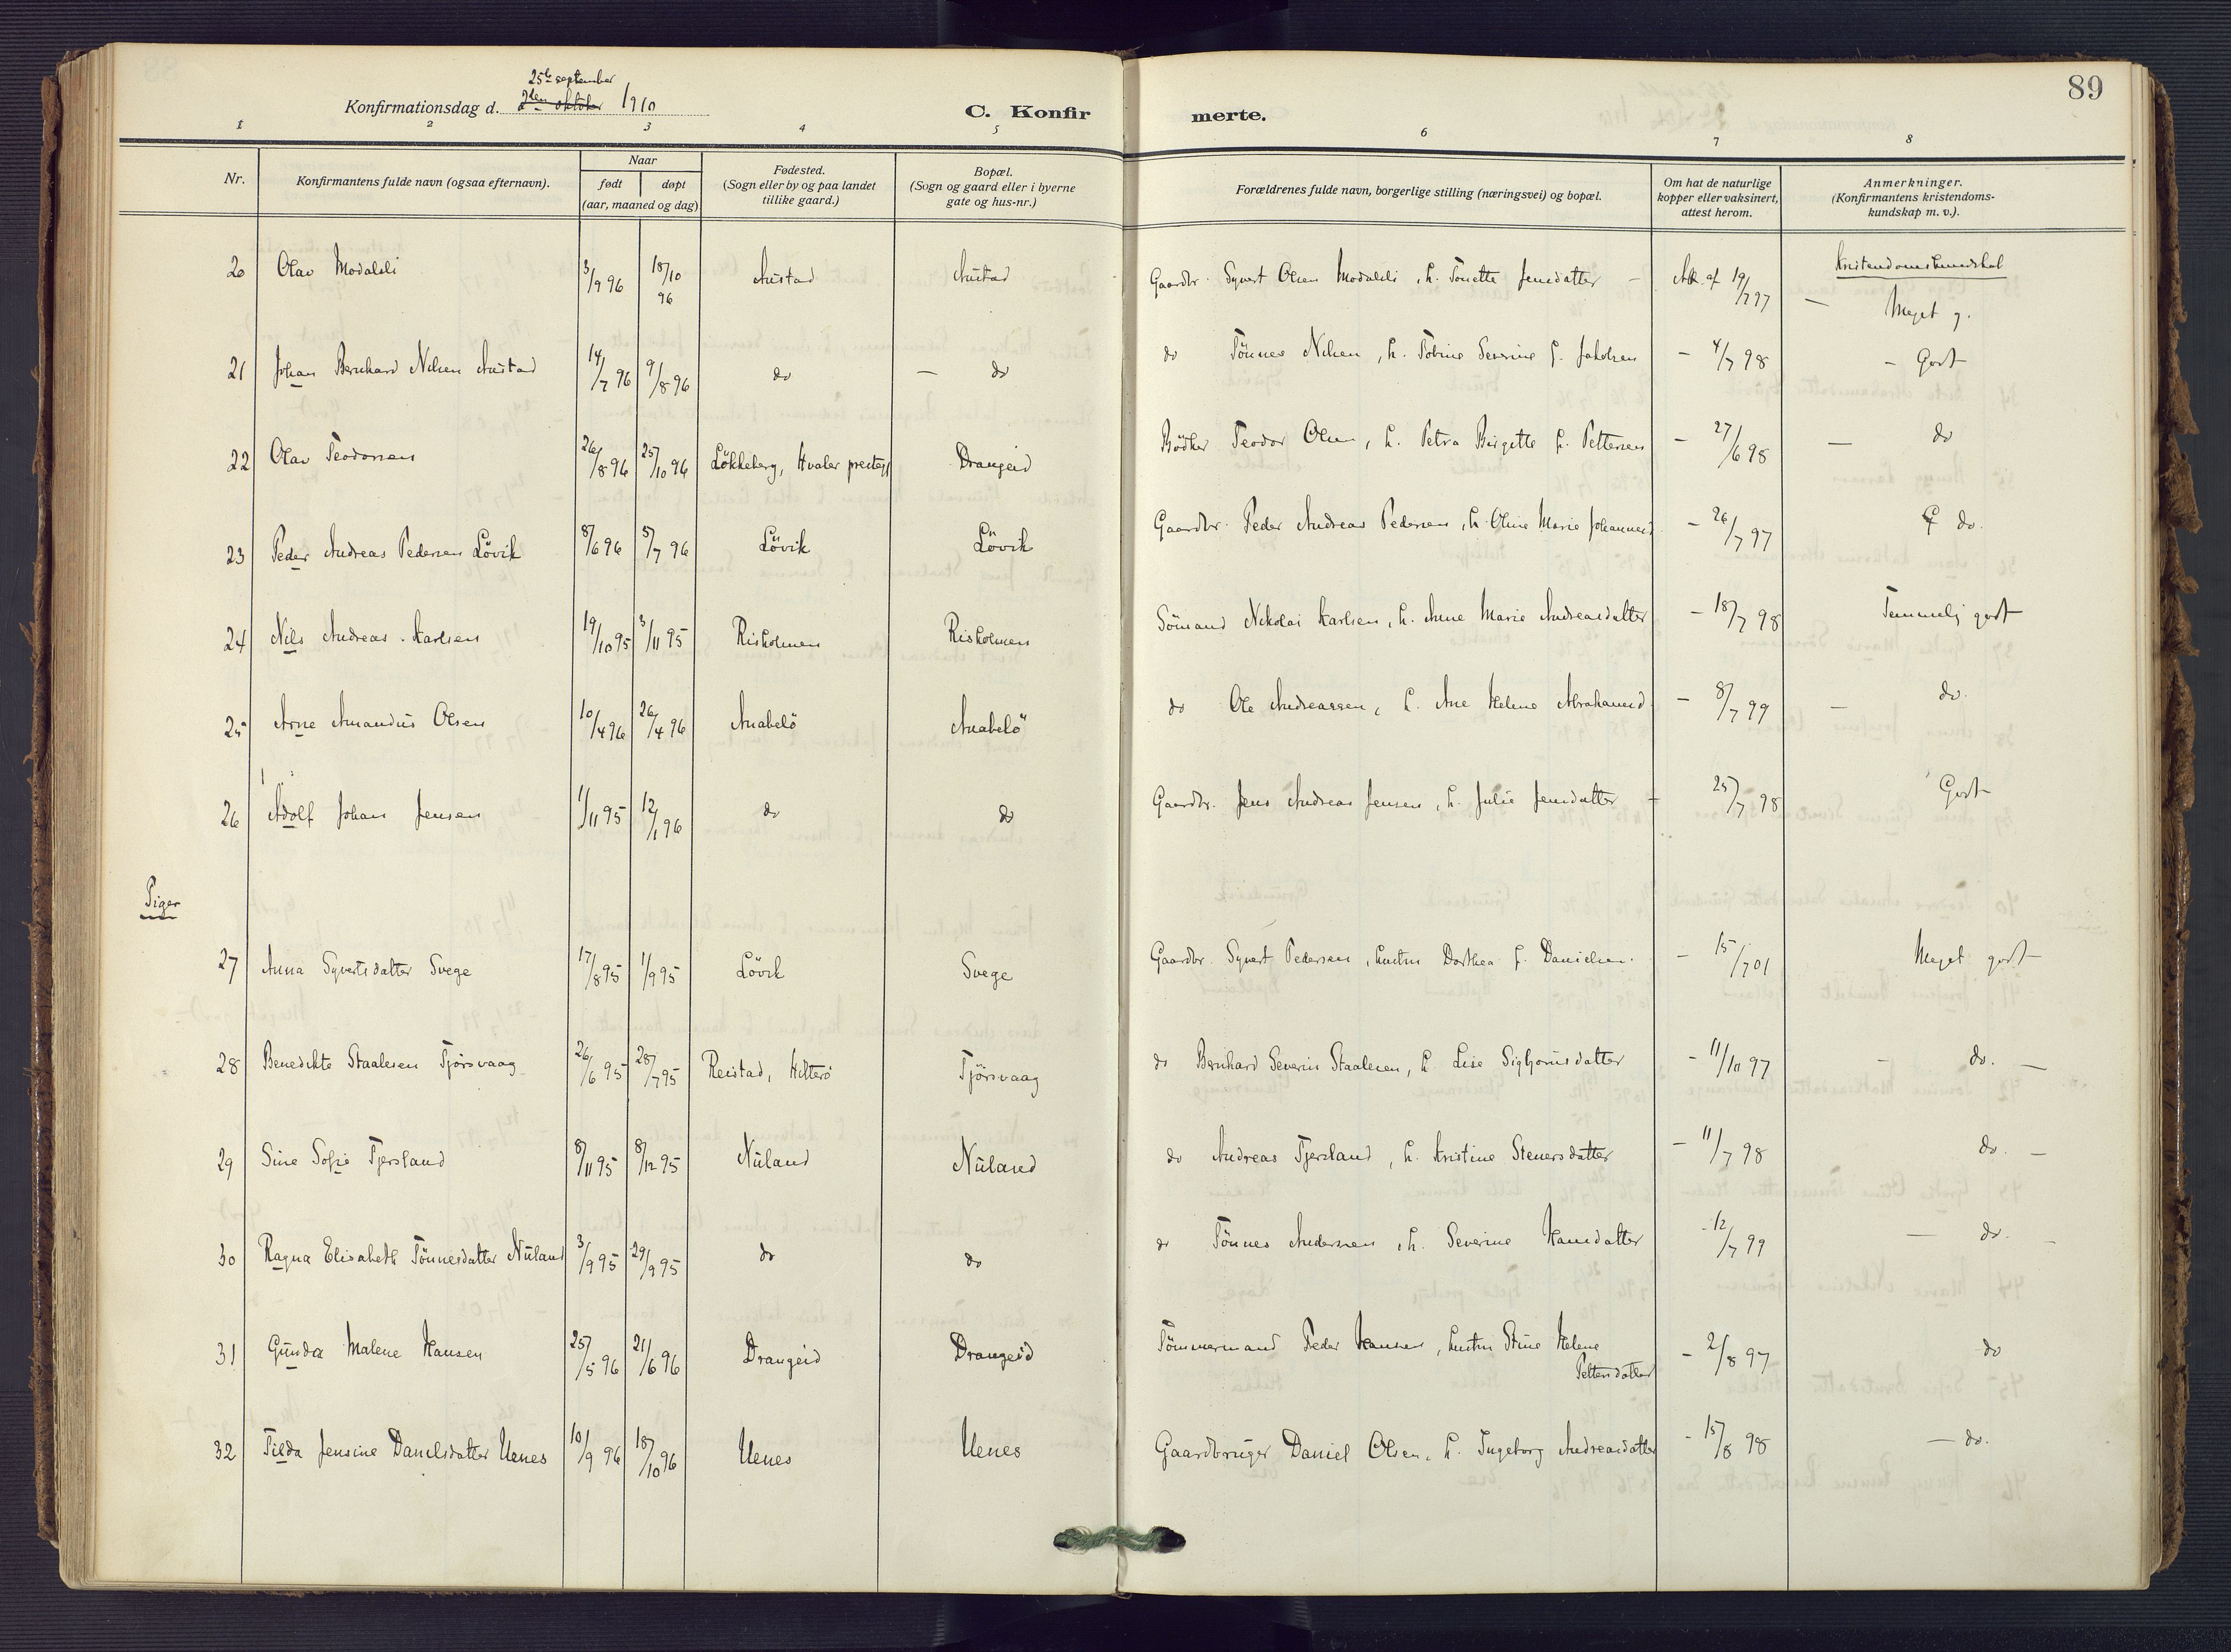 89
25de september
Konfirmationsdag d. 2den oktober 1910
C. Konfirmerte.
1 2 3 4 5 6 7 8
Nr. Konfirmantens fulde navn (ogsaa efternavn). Naar født døpt (aar, maaned og dag) Fødested. (Sogn eller by og paa landet tillike gaard.) Bopæl. (Sogn og gaard eller i byerne gate og hus-nr.) Forældrenes fulde navn, borgerlige stilling (næringsvei) og bopæl. Om hat de naturlige kopper eller vaksinert, attest herom. Anmerkninger. (Konfirmantens kristendoms-kundskap m. v.).
Kristendomskundskab
20 Olav Modalsli 3/9 96 18/10 96 Austad Austad Gaardbr. Syvert Olsen Modalsli, h. Tonette Jensdatter – Att. af 19/7 97 – Meget g.
21 Johan Bernhard Nilsen Austad 14/7 96 9/8 96 do – do do Tönnes Nilsen, h. Tobine Severine f. Jakobsen – 4/7 98 – Godt
22 Olav Teodorsen 26/8 96 25/10 96 Lökkeberg, Hvaler prestegj Drangeid Bödker Teodor Olsen, h. Petra Birgitte f. Pettersen – 27/6 98 – do
23 Peder Andreas Pedersen Lövik 8/6 96 5/7 96 Lövik Lövik Gaardbr. Peder Andreas Pedersen, h. Oline Marie Johannesd. – 26/7 97 do.
24 Nils Andreas Karlsen 19/10 95 3/11 95 Risholmen Risholmen Sömand Nikolai Karlsen, h. Anne Marie Andreasdatter – 18/7 98 Temmelig godt
25 Arne Amandus Olsen 10/4 96 26/4 96 Anabelö Anabelö do Ole Andreassen, h. Ane Helene Abrahamsd. – 8/7 99 – do.
26 Adolf Johan Jensen 1/11 95 12/1 96 do do Gaardbr. Jens Andreas Jensen, h. Julie Jensdatter – 25/7 98 Godt
Piger
27 Anna Syvertsdatter Svege 17/8 95 1/9 95 Lövik Svege Gaardbr. Syvert Pedersen, hustru Dorthea f. Danielsen. – 15/7 01 Meget godt
28 Benedikte Staalesen Tjörsvaag 26/6 95 28/7 95 Reistad, Hitterö Tjörsvaag do Bernhard Severin Staalesen, h Lise Sigbjörnsdatter – 11/10 97 – do. –
29 Sine Sofie Tjersland 8/11 95 8/12 95 Nuland Nuland do Andreas Tjersland, h. Kristine Stenersdatter – 11/7 98 do. –
30 Ragna Elisabeth Tönnesdatter Nuland 3/9 95 29/9 95 do do do Tönnes Andersen, h. Severine Hansdatter – 12/7 99 – do. –
31 Gunda Malene Hansen 25/5 96 21/6 96 Drangeid Drangeid Tömmermand Peder Hansen, hustru Stine Helene Pettersdatter – 2/8 97 do
32 Tilda Jensine Danielsdatter Uenes 10/9 96 18/10 96 Uenes Uenes Gaardbruger Daniel Olsen, h. Ingeborg Andreasdatter – 15/8 98 – do.